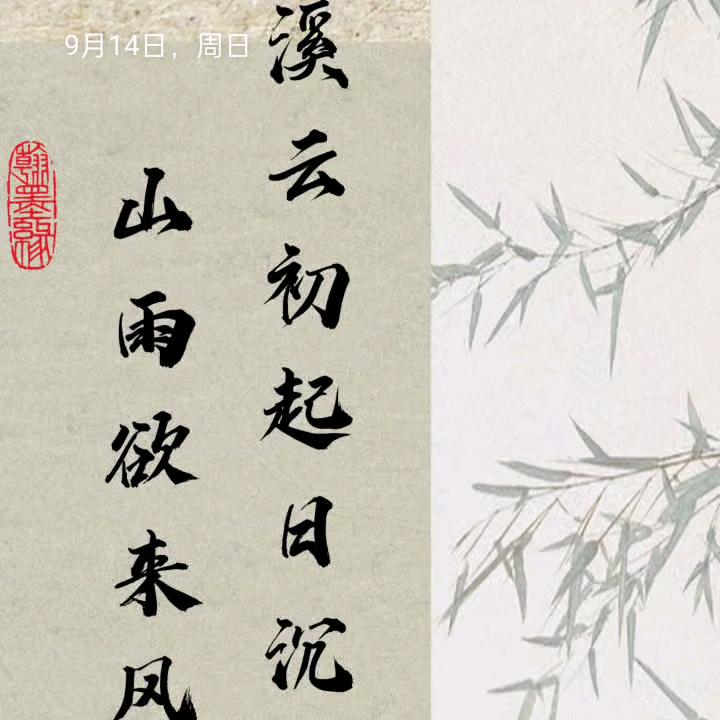 9月14日，周日
溪云初起日沉
山雨欲来风
翰墨缘